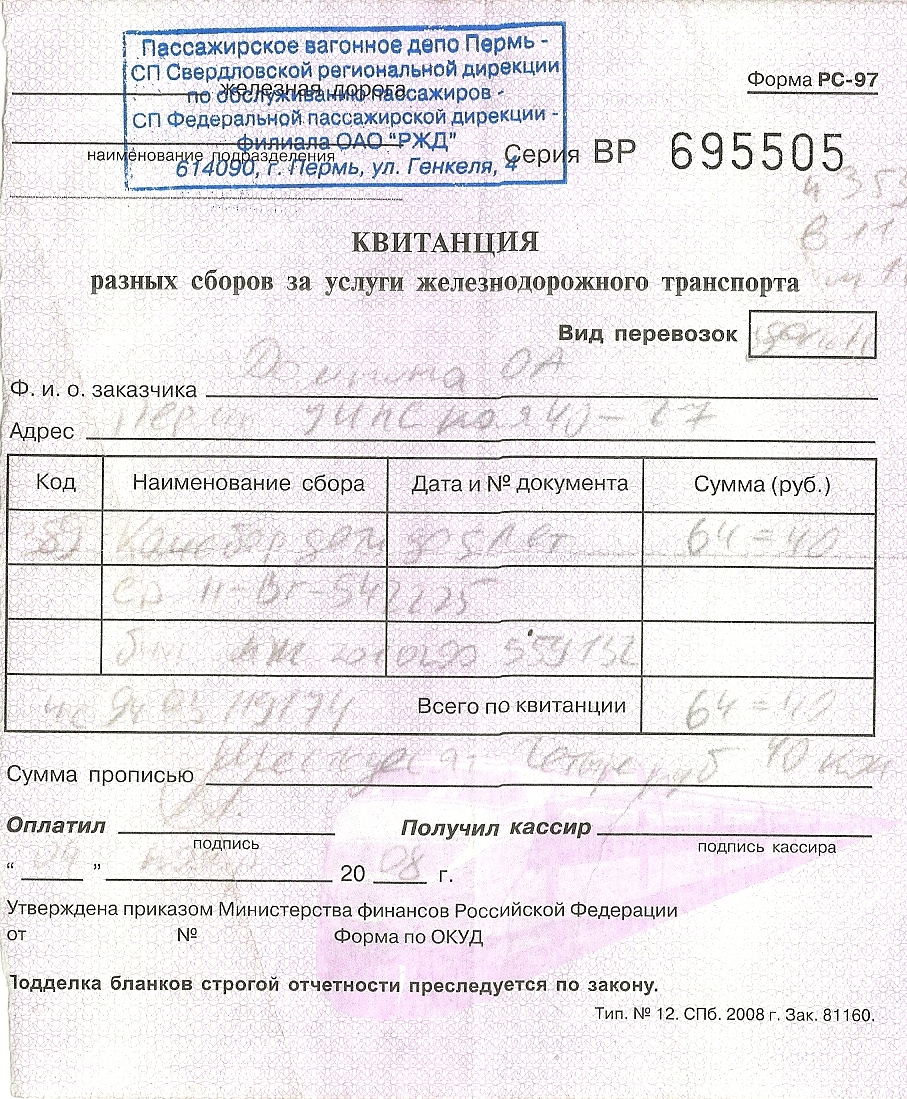 Пассажирское вагонное депо Пермь -
СП Свердловской региональной дирекции
по обслуживанию пассажиров -
СП Федеральной пассажирской дирекции -
филиала ОАО "РЖД"
614090, г. Пермь, ул. Генкеля, 4
железная дорога
наименование подразделения
Форма РС-97
Серия ВР 695505
в 11
КВИТАНЦИЯ
разных сборов за услуги железнодорожного транспорта
Вид перевозок
Ф. и о. заказчика ОА
Адрес Перм 40-
Код Наименование сбора Дата и № документа Сумма (руб.)
64=40
542225
559132
119174 Всего по квитанции 64=40
Сумма прописью четыре руб 40 коп
Оплатил Получил кассир
подпись подпись кассира
" " 20 08 г.
Утверждена приказом Министерства финансов Российской Федерации
от № Форма по ОКУД
Подделка бланков строгой отчетности преследуется по закону.
Тип. № 12. СПб. 2008 г. Зак. 81160.